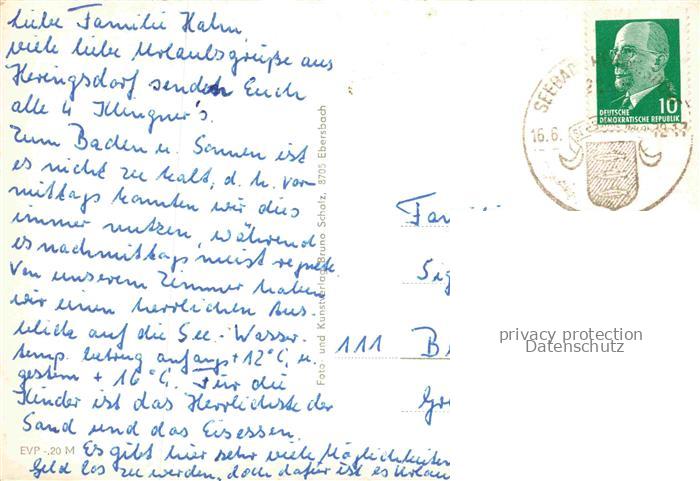 Liebe Familie Hahn,
viele liebe Urlaubsgrüße aus
Heringsdorf senden Euch
alle 4 Klingner's.
Zum Baden u. Sonnen ist
es nicht zu kalt, d. h. vor-
mittags konnten wir dies
immer nutzen, während
es nachmittags meist regnete.
Von unserem Zimmer haben
wir einen herrlichen Aus-
blick auf die See. Wasser-
temp. betrug anfangs +12°C, u.
gestern + 16°C. Für die
Kinder ist das Herrlichste der
Sand und das Eisessen.
Es gibt hier sehr viele Möglichkeiten
Geld los zu werden, doch dafür ist es Urlau
EVP -,20 M
Foto- und Kunstverlag Bruno Scholz, 8705 Ebersbach
SEEBAD
16.6.
DEUTSCHE
DEMOKRATISCHE REPUBLIK
10
Fam
Sig
111 B
Gr
privacy protection
Datenschutz